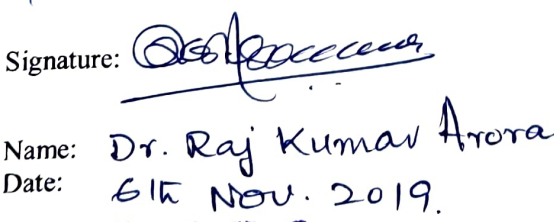 Signature:
Name: Dr. Raj Kumar Arora
Date: 6th Nov. 2019.